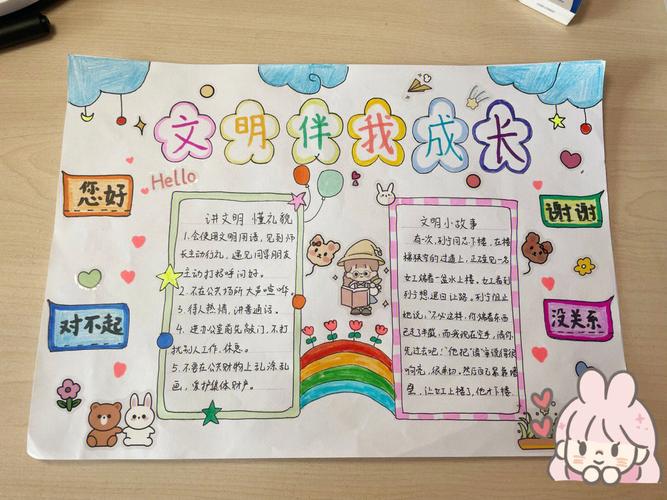 文明伴我成长
Hello
您好
谢谢
对不起
没关系
讲文明 懂礼貌
1.会使用文明用语,见到师
长主动行礼,遇见同学朋友
主动打招呼问好。
2.不在公共场所大声喧哗。
3.待人热情,讲普通话。
4.进办公室前先敲门,不打
扰别人工作、休息。
5.不要在公共财物上乱涂乱
画,爱护集体财产。
文明小故事
有一次,列宁同志下楼,在楼
梯狭窄的过道上,正碰见一名
女工端着一盆水上楼。女工看到
列宁想退回让路。列宁阻止
她说:"不必这样,你端着东西
已走了半截,而我现在空手,请你
先过去吧!"他把"请"字说得很
响亮,很亲切。然后自己紧靠墙
壁,让女工上楼了,他才下楼